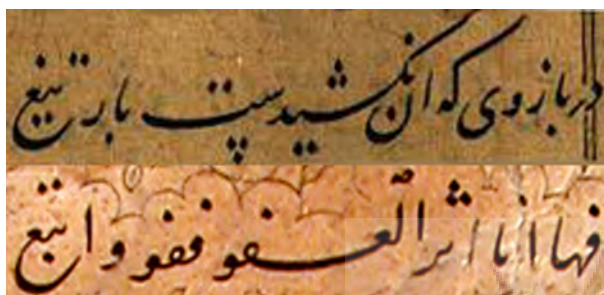 در بازوی که ان نکشیدست بار تیغ
فها انا اثر العفو واتبع